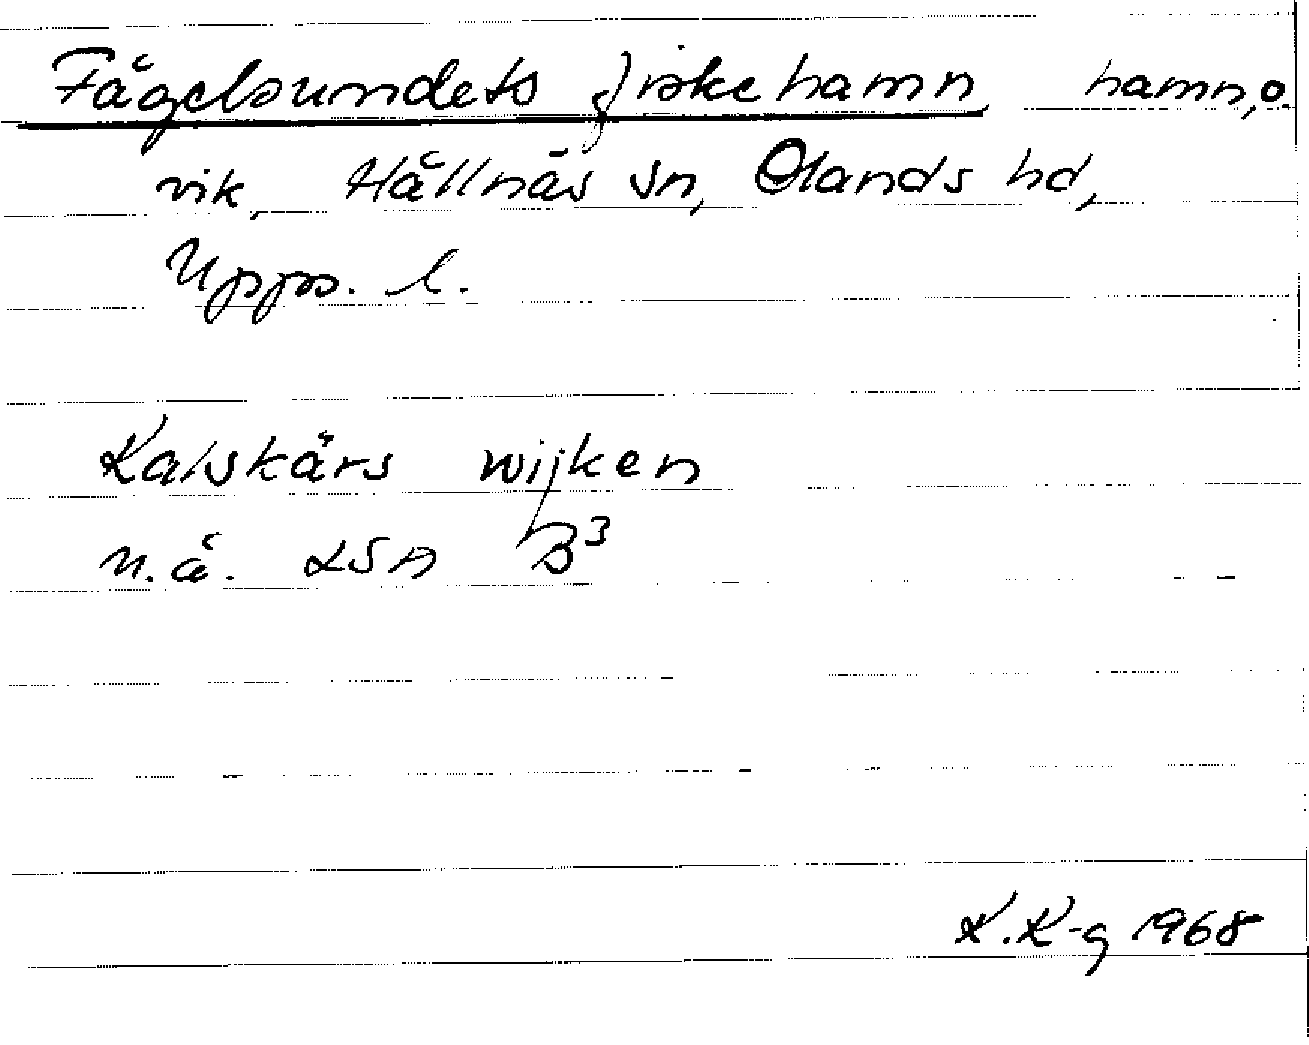 Fågelsundets fiskehamn hamn, o.
vik, Hållnäs sn, Olands hd,
Upps. l.
Kalskärs wijken
n.å. LSA B3
K.K-g 1968